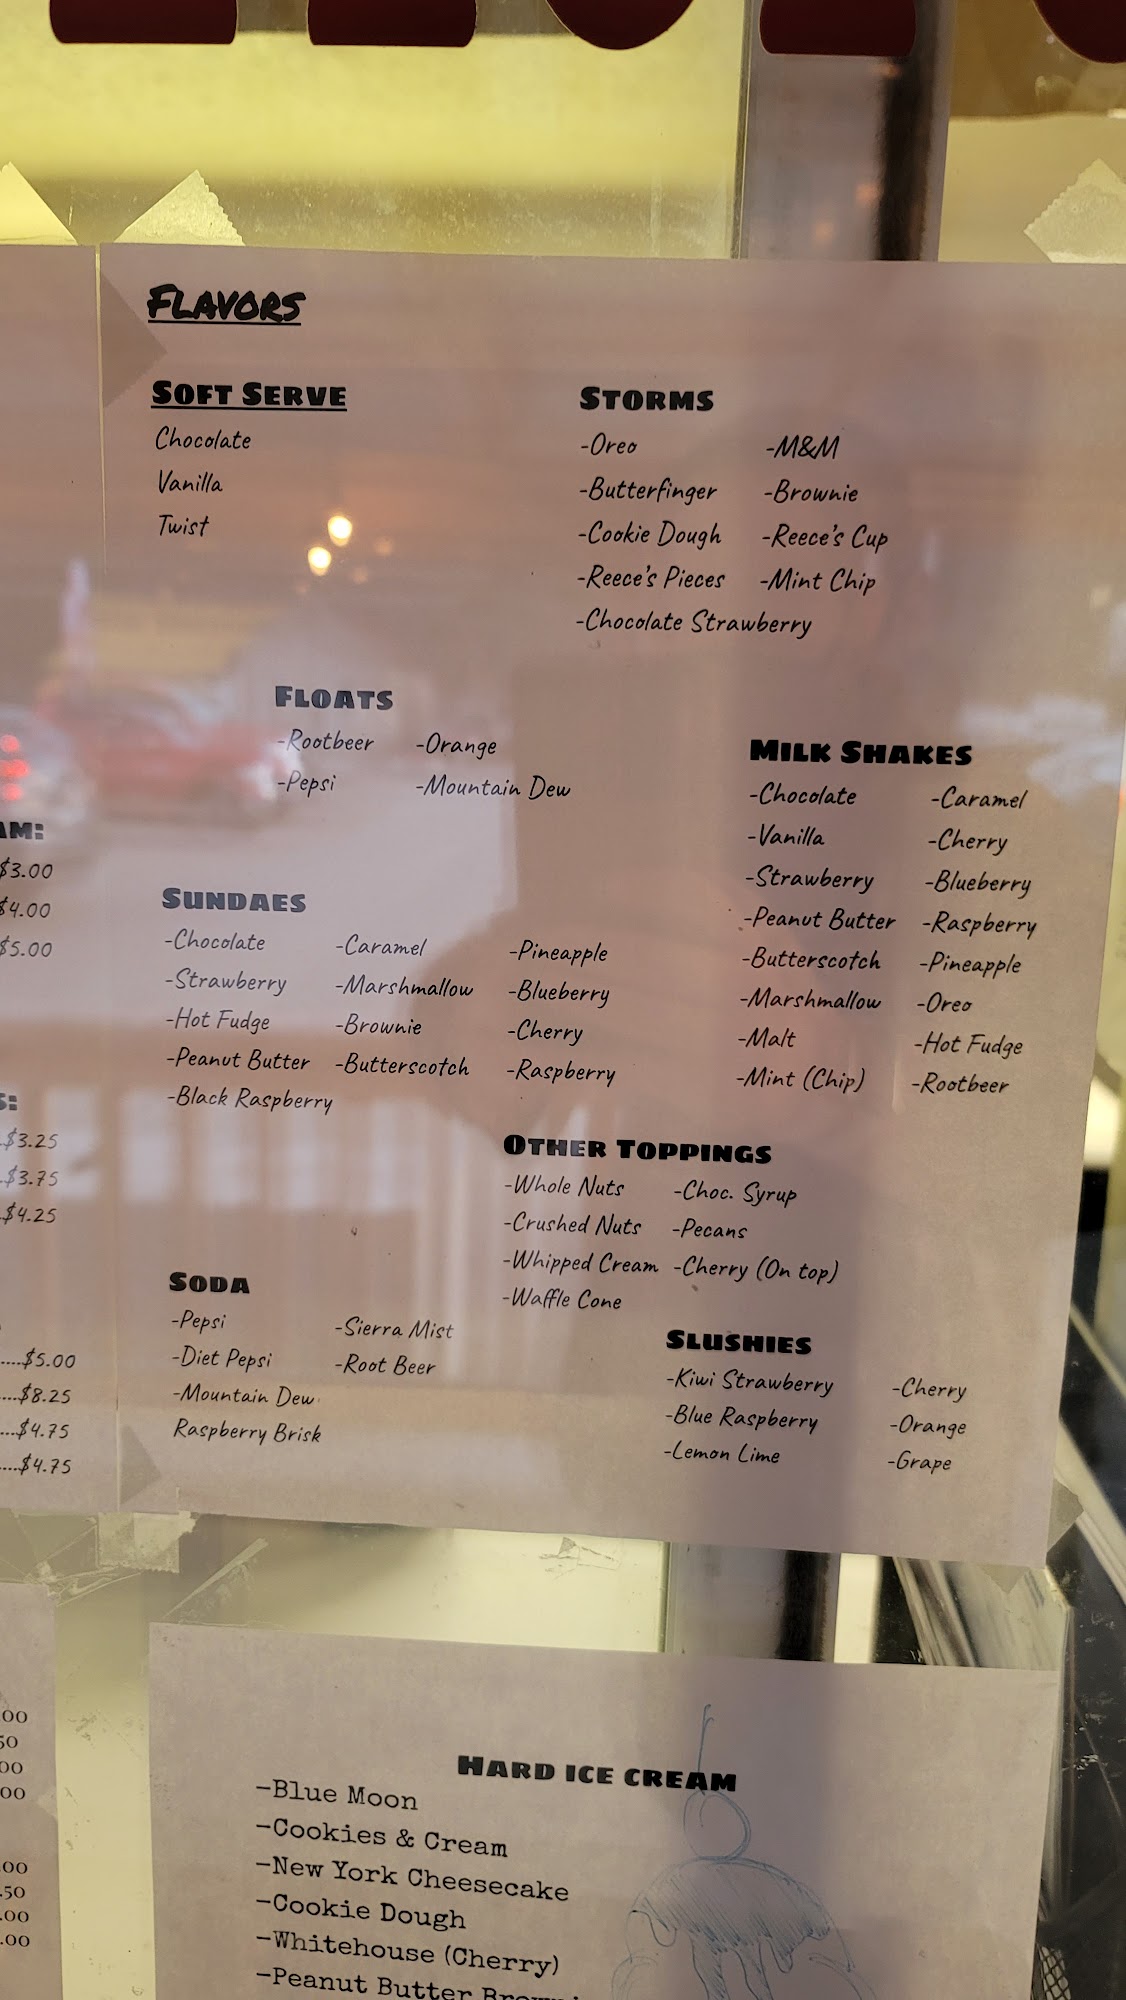 Flavors
Soft Serve
Chocolate
Vanilla
Twist
Storms
-Oreo -M&M
-Butterfinger -Brownie
-Cookie Dough -Reece's Cup
-Reece's Pieces -Mint Chip
-Chocolate Strawberry
Floats
-Rootbeer -Orange
-Pepsi -Mountain Dew
Milk Shakes
-Chocolate -Caramel
-Vanilla -Cherry
-Strawberry -Blueberry
-Peanut Butter -Raspberry
-Butterscotch -Pineapple
-Marshmallow -Oreo
-Malt -Hot Fudge
-Mint (Chip) -Rootbeer
$3.00
$4.00
$5.00
Sundaes
-Chocolate -Caramel -Pineapple
-Strawberry -Marshmallow -Blueberry
-Hot Fudge -Brownie -Cherry
-Peanut Butter -Butterscotch -Raspberry
-Black Raspberry
.$3.25
.$3.75
.$4.25
Other Toppings
-Whole Nuts -Choc. Syrup
-Crushed Nuts -Pecans
-Whipped Cream -Cherry (On top)
-Waffle Cone
Soda
-Pepsi -Sierra Mist
-Diet Pepsi -Root Beer
-Mountain Dew
Raspberry Brisk
....$5.00
....$8.25
...$4.75
....$4.75
Slushies
-Kiwi Strawberry -Cherry
-Blue Raspberry -Orange
-Lemon Lime -Grape
Hard ice cream
-Blue Moon
-Cookies & Cream
-New York Cheesecake
-Cookie Dough
-Whitehouse (Cherry)
-Peanut Butter